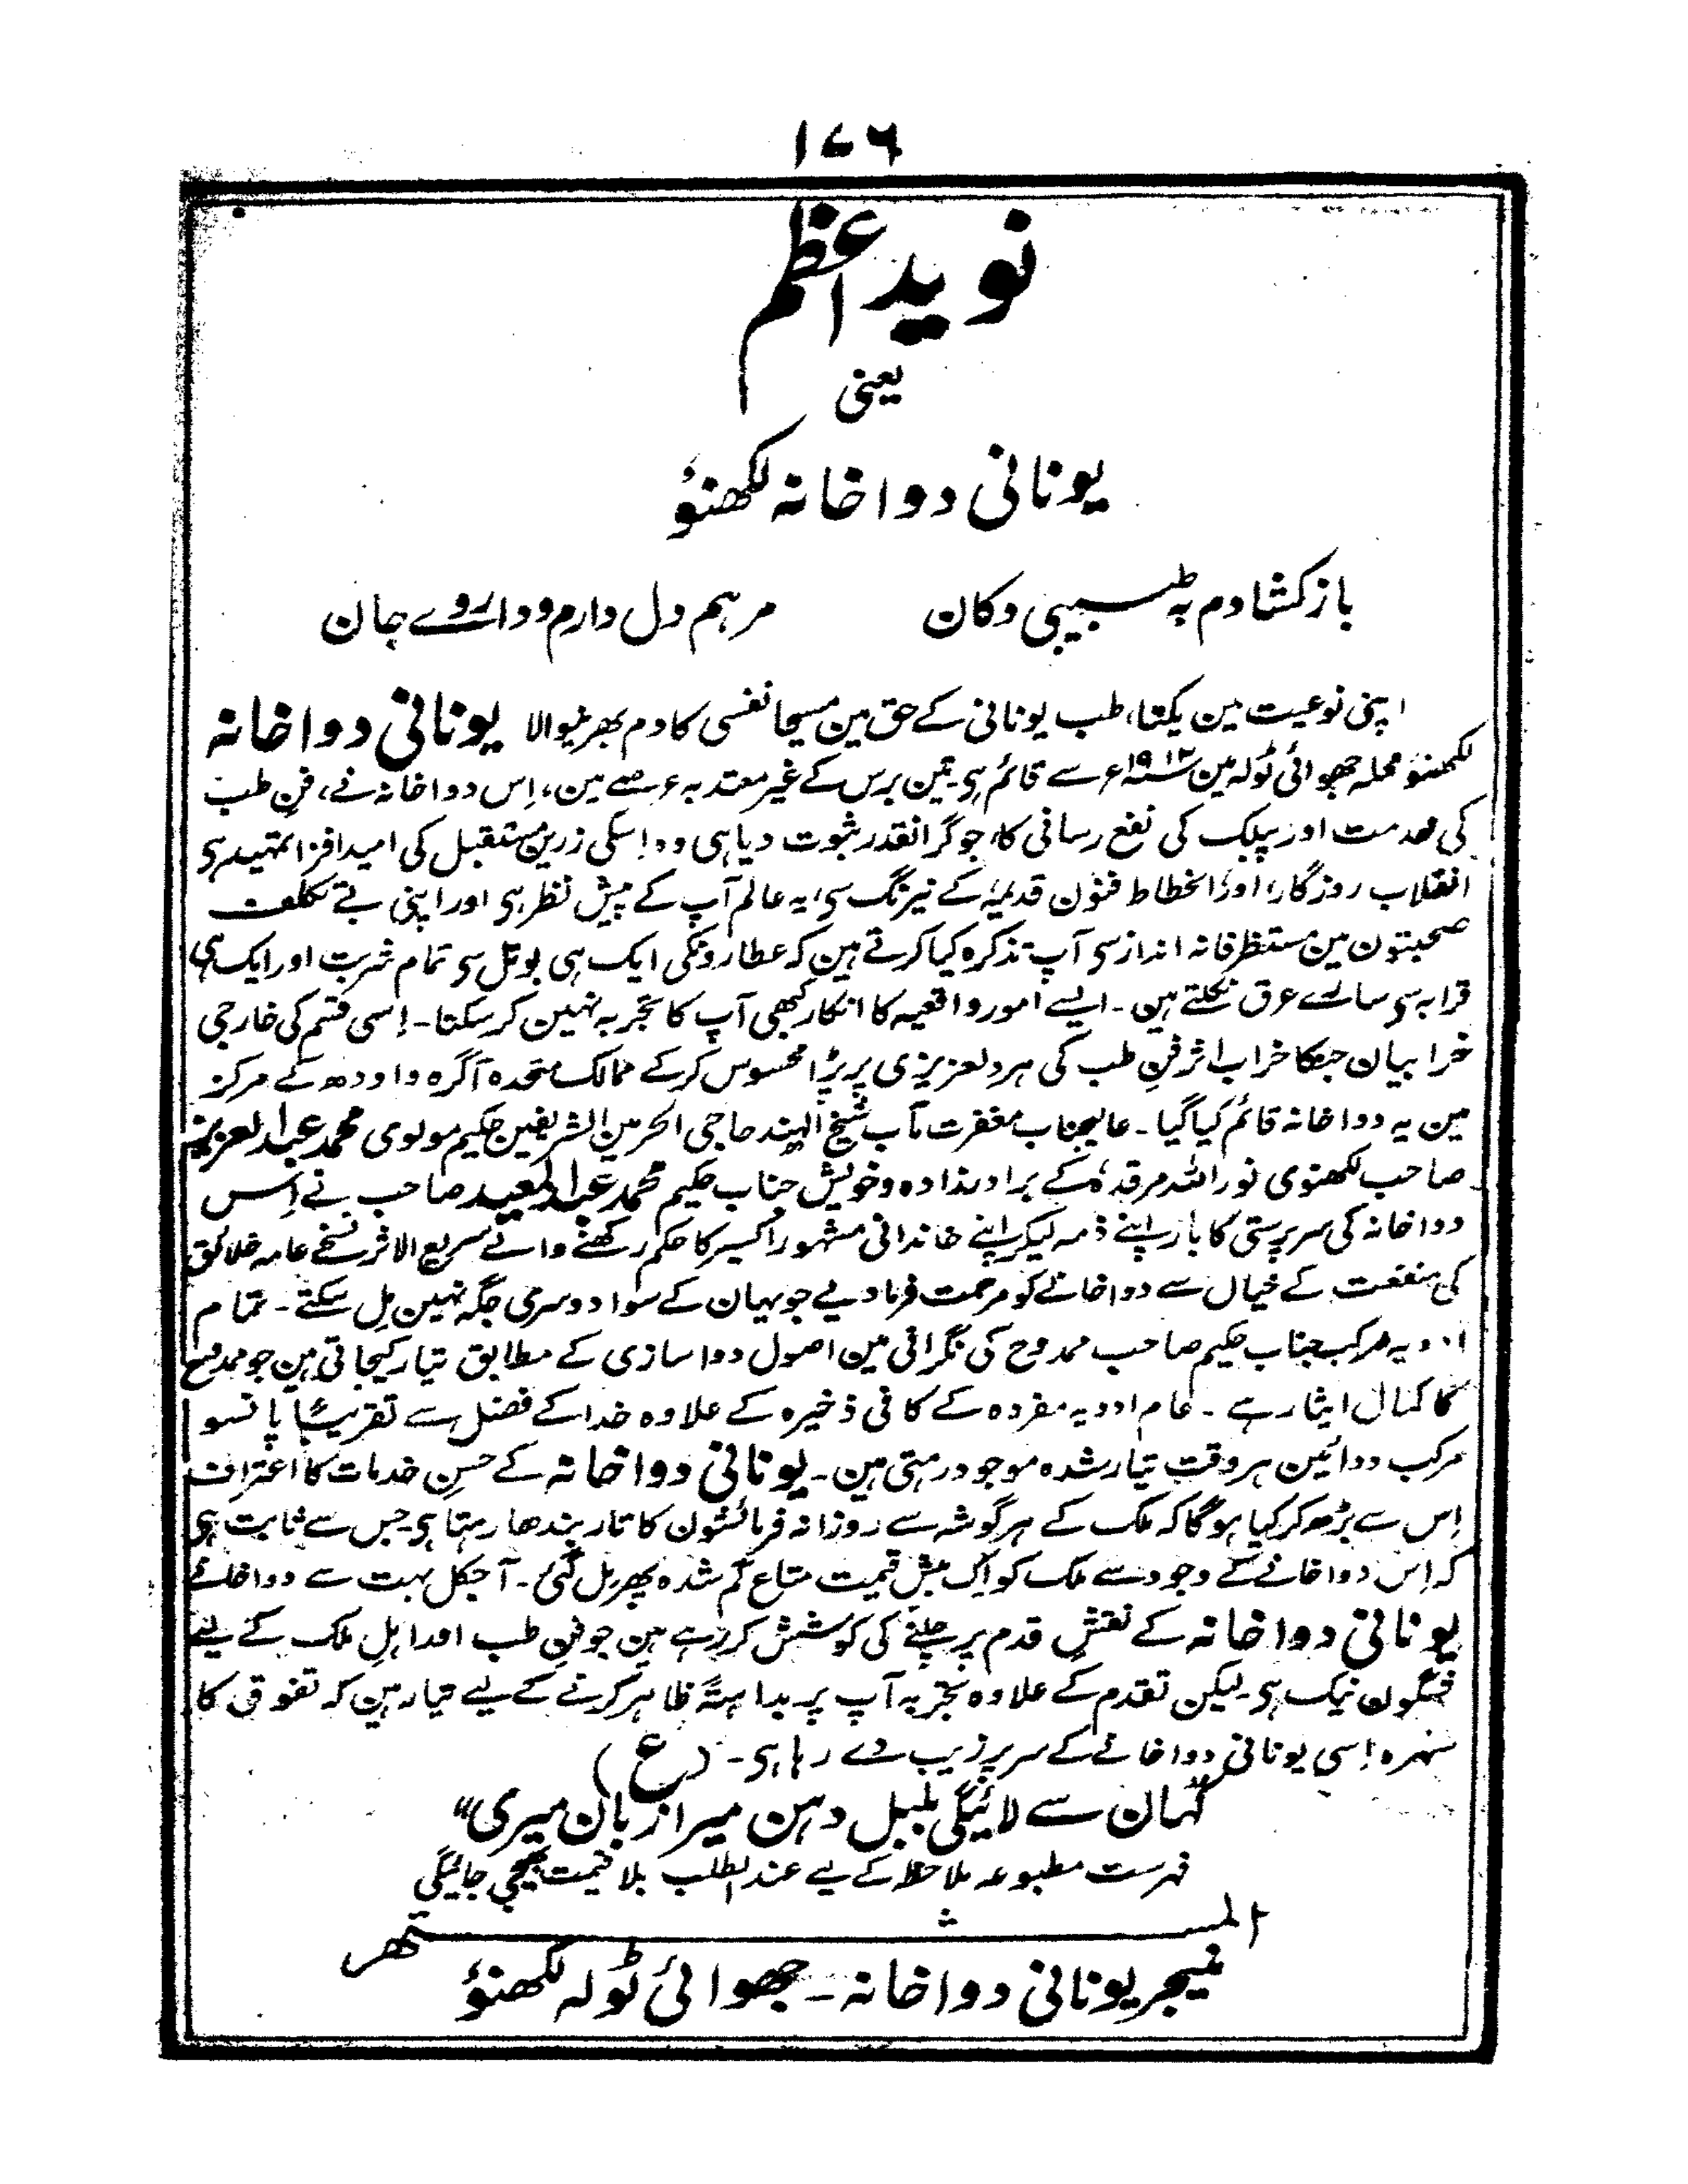 ۱۷۶
نوید اعظم
یعنی
یونانی دواخانہ لکھنؤ
باز کشادم بہ طبیبی دکان مرہم دل دارم و داروے جان
اپنی نوعیت مین یکتا، طب یونانی کے حق مین مسیحا نفسی کا دم بھرنیوالا یونانی دواخانہ
لکھنؤ محلہ جھوائی ٹولہ مین سنہ ۱۹۱۲ء سے قائم ہی۔ تین برس کے غیر معتد بہ عرصے مین، اِس دواخانہ نے، فنِ طب
کی خدمت اور پبلک کی نفع رسانی کا، جو گرانقدر ثبوت دیا ہی وہ اِسکی زرین مستقبل کی امید افزا تمہید ہی
انقلاب روزگار، اور انحطاط فنون قدیمہ کے نیرنگ سی، یہ عالم آپ کے پیش نظر ہی اور اپنی بے تکلف
صحبتون مین مستظرفانہ انداز سی آپ تذکرہ کیا کرتے ہین کہ عطارونکی ایک ہی بوتل سی تمام شربت اور ایک ہی
قرابہ سی سارے عرق نکلتے ہین۔ ایسے امور واقعیہ کا انکار کبھی آپ کا تجربہ نہین کر سکتا۔ اِسی قسم کی خارجی
خرابیان جنکا خراب اثر فنِ طب کی ہر دلعزیزی پر پڑا محسوس کرکے ممالک متحدہ آگرہ و اودھ کے مرکز
مین یہ دواخانہ قائم کیا گیا۔ عالیجناب مغفرت مآب شیخ الہند حاجی الحرمین الشریفین حکیم مولوی محمد عبد العزیز
صاحب لکھنوی نور اللہ مرقدہ کے برادر زادہ و خویش جناب حکیم محمد عبد المعید صاحب نے اِس
دواخانہ کی سرپرستی کا بار اپنے ذمہ لیکر اپنے خاندانی مشہور اکسیر کا حکم رکھنے والے سریع الاثر نسخے عامہ خلائق
کی منفعت کے خیال سے دواخانے کو مرحمت فرما دیے جو یہان کے سوا دوسری جگہ نہین مِل سکتے۔ تمام
ادویہ مرکب جناب حکیم صاحب ممدوح کی نگرانی مین اصول دوا سازی کے مطابق تیار کیجاتی ہین جو ممدوح
کا کمال ایثار ہے۔ عام ادویہ مفردہ کے کافی ذخیرہ کے علاوہ خدا کے فضل سے تقریبًا پانسو
مرکب دوائین ہر وقت تیار شدہ موجود رہتی ہین۔ یونانی دواخانہ کے حسنِ خدمات کا اعتراف
اِس سے بڑھ کر کیا ہوگا کہ ملک کے ہر گوشہ سے روزانہ فرمائشون کا تار بندھا رہتا ہی جس سے ثابت ہی
کہ اِس دواخانے کے وجود سے ملک کو اِک بیش قیمت متاع گم شدہ پھر مل گئی۔ آجکل بہت سے دواخانے
یونانی دواخانہ کے نقشِ قدم پر چلنے کی کوشش کر رہے ہین جو فنِ طب اور اہلِ ملک کے لیے
شگون نیک ہی۔ لیکن تقدم کے علاوہ تجربہ آپ پر بداہتہً ظاہر کرنے کے لیے تیار ہین کہ تفوق کا
سہرہ اِسی یونانی دواخانے کے سر پر زیب دے رہا ہی۔ (ع)
"کہان سے لائیگی بلبل دہن میرا زبان میری"
فہرست مطبوعہ ملاحظہ کے لیے عند الطلب بلا قیمت بھیجی جائیگی
المشتھر
منیجر یونانی دواخانہ۔ جھوائی ٹولہ لکھنؤ